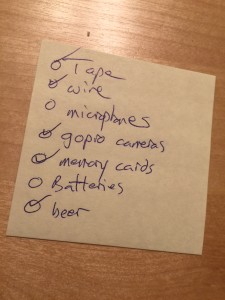 Tape
wire
microphones
gopro cameras
memory cards
Batteries
beer